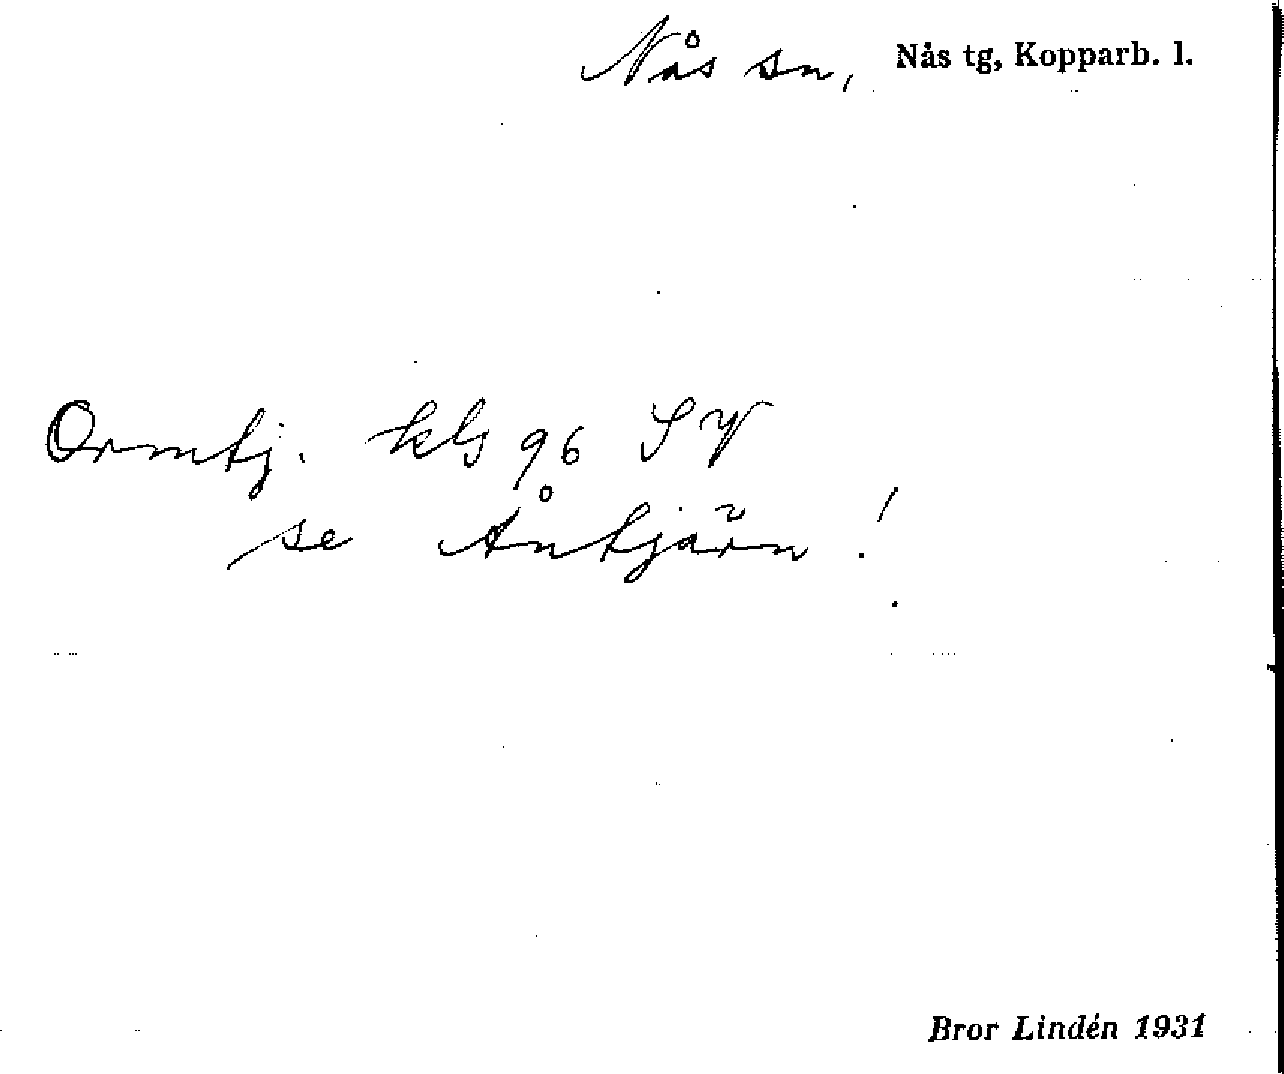 Nås sn, Nås tg, Kopparb. l.
Ormtj. kbl 96 SV
se Åntjärn!
Bror Lindén 1931